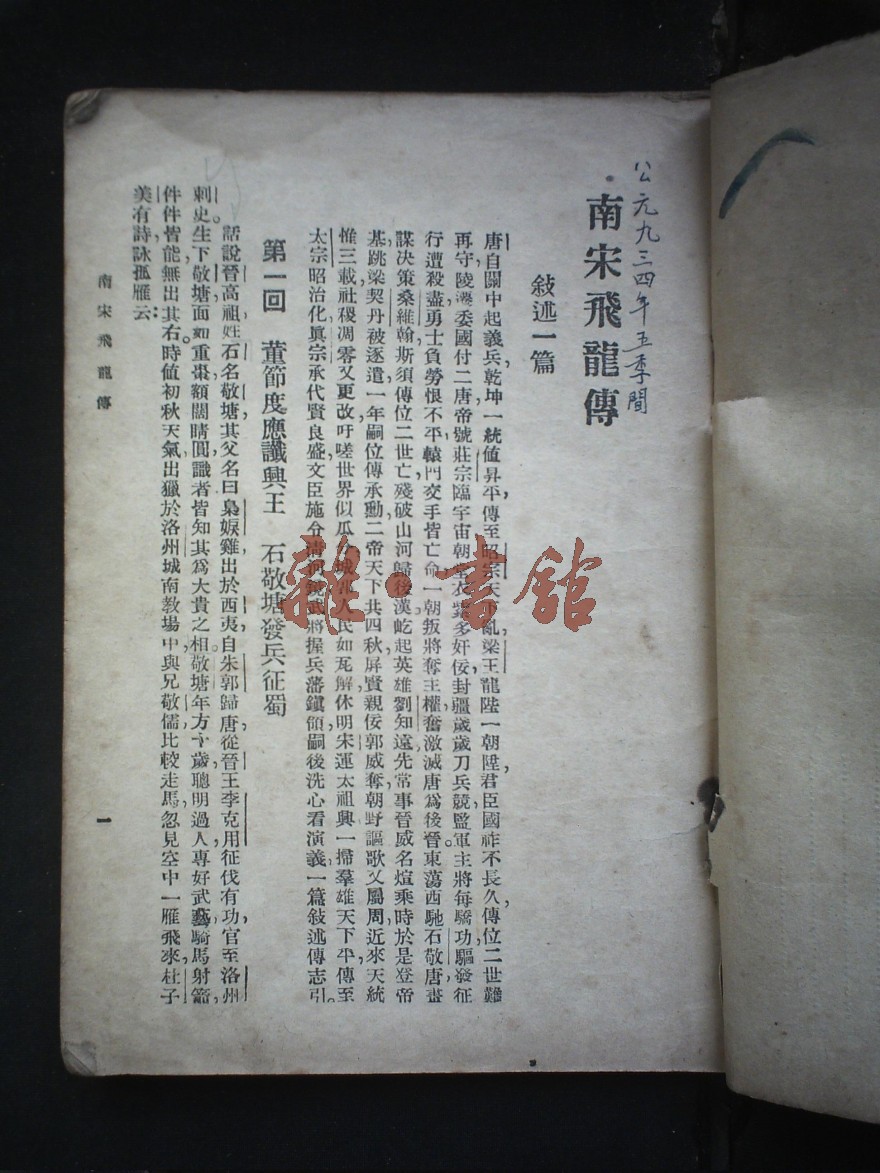 公元九三四年五季間
南宋飛龍傳
敍述一篇
唐自關中起義兵,乾坤一統値昇平,傳至昭宗天下亂,梁王龍陛一朝陞,君臣國祚不長久,傳位二世難
再守,陵遷委國付二唐,帝號莊宗臨宇宙,朝堂衣紫多奸佞,封疆歲歲刀兵競,監軍主將每驕功,驅發征
行遭殺盡,勇士負勞恨不平,轅門交手皆亡命,一朝叛將奪主權,奮激滅唐爲後晉。東蕩西馳石敬唐,畫
謀決策桑維翰,斯須傳位二世亡,殘破山河歸後漢,屹起英雄劉知遠,先常事晉威名煊,乘時於是登帝
基,跳梁契丹被逐遣,一年嗣位傳承勳,二帝天下共四秋,屏賢親佞郭威奪,朝野謳歌又屬周,近來天統
惟三載,社稷凋零又更改,吁嗟世界似瓜分,城郭人民如瓦解,休明宋運太祖興,一掃羣雄天下平,傳至
太宗昭治化,眞宗承代賢良盛,文臣施分淸朝,武將握兵藩鎭領,嗣後洗心看演義,一篇敍述傳志引。
第一回 董節度應讖興王 石敬塘發兵征蜀
話說晉高祖姓石名敬塘,其父名曰梟娛雞,出於西夷,自朱郭歸唐,從晉王李克用征伐有功,官至洛州
刺史。生下敬塘,面如重棗,額闊睛圓,識者皆知其爲大貴之相。敬塘年方十歲,聰明過人,專好武藝,騎馬射箭,
件件皆能,無出其右。時値初秋天氣,出獵於洛州城南教場中,與兄敬儒比較走馬,忽見空中一雁飛來,杜子
美有詩詠孤雁云:
南宋飛龍傳
一
雜·書館